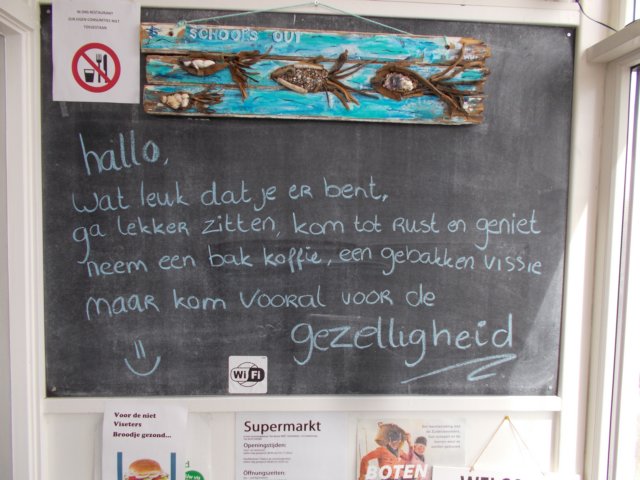 IN ONS RESTAURANT
ZIJN EIGEN CONSUMPTIES NIET
TOEGESTAAN
SCHOOLS OUT
hallo,
wat leuk dat je er bent,
ga lekker zitten, kom tot rust en geniet
neem een bak koffie, een gebakken vissie
maar kom vooral voor de
gezelligheid
Wi Fi
Voor de niet
Viseters
Broodje gezond...
Supermarkt
Openingstijden:
Öffnungszeiten:
BOTEN